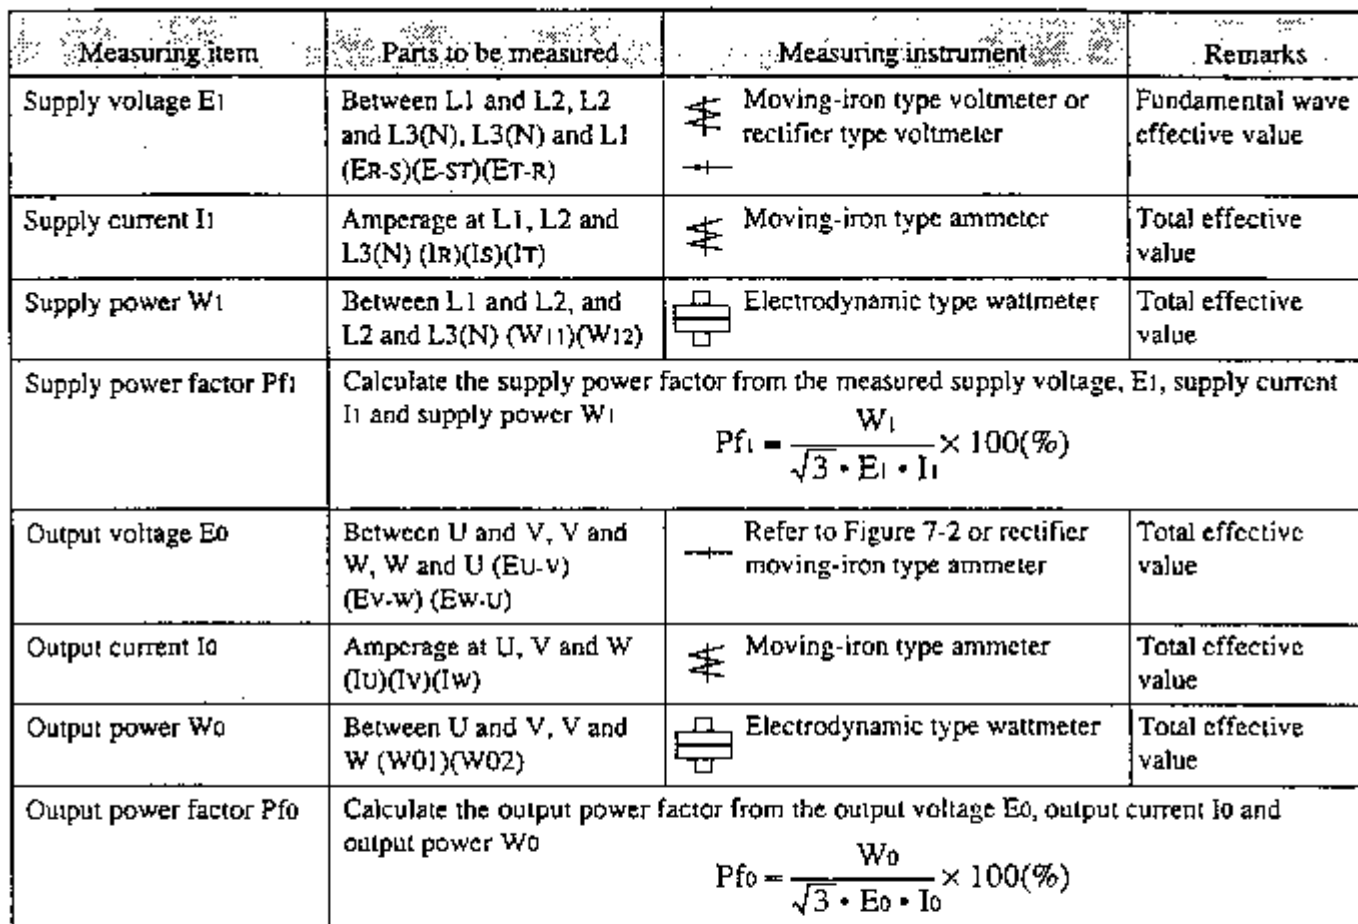 Measuring item Parts to be measured Measuring instrument Remarks
Supply voltage E1
Between L1 and L2, L2
and L3(N), L3(N) and L1
(ER-S)(E-ST)(ET-R)
Moving-iron type voltmeter or
rectifier type voltmeter
Fundamental wave
effective value
Supply current I1
Amperage at L1, L2 and
L3(N) (IR)(IS)(IT)
Moving-iron type ammeter
Total effective
value
Supply power W1
Between L1 and L2, and
L2 and L3(N) (W11)(W12)
Electrodynamic type wattmeter
Total effective
value
Supply power factor Pf1
Calculate the supply power factor from the measured supply voltage, E1, supply current
I1 and supply power W1
Pf1 = W1 / √3 • E1 • I1 × 100(%)
Output voltage E0
Between U and V, V and
W, W and U (EU-V)
(EV-W) (EW-U)
Refer to Figure 7-2 or rectifier
moving-iron type ammeter
Total effective
value
Output current I0
Amperage at U, V and W
(IU)(IV)(IW)
Moving-iron type ammeter
Total effective
value
Output power W0
Between U and V, V and
W (W01)(W02)
Electrodynamic type wattmeter
Total effective
value
Output power factor Pf0
Calculate the output power factor from the output voltage E0, output current I0 and
output power W0
Pf0 = W0 / √3 • E0 • I0 × 100(%)